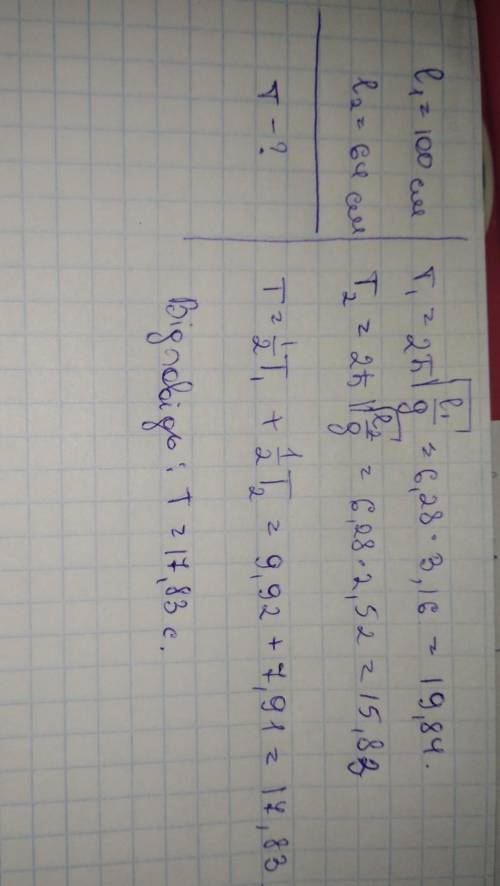 l₁ = 100 см
l₂ = 64 см
T - ?
T₁ = 2π√(l₁/g) = 6,28 · 3,16 = 19,84.
T₂ = 2π√(l₂/g) = 6,28 · 2,52 = 15,82
T = 1/2 T₁ + 1/2 T₂ = 9,92 + 7,91 = 17,83
Відповідь: T = 17,83 с.